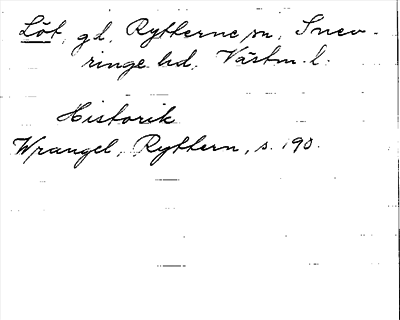 Löt, gd, Rytterne sn, Snev-
ringe hd. Västm. l.
Historik
Wrangel, Ryttern, s. 190.